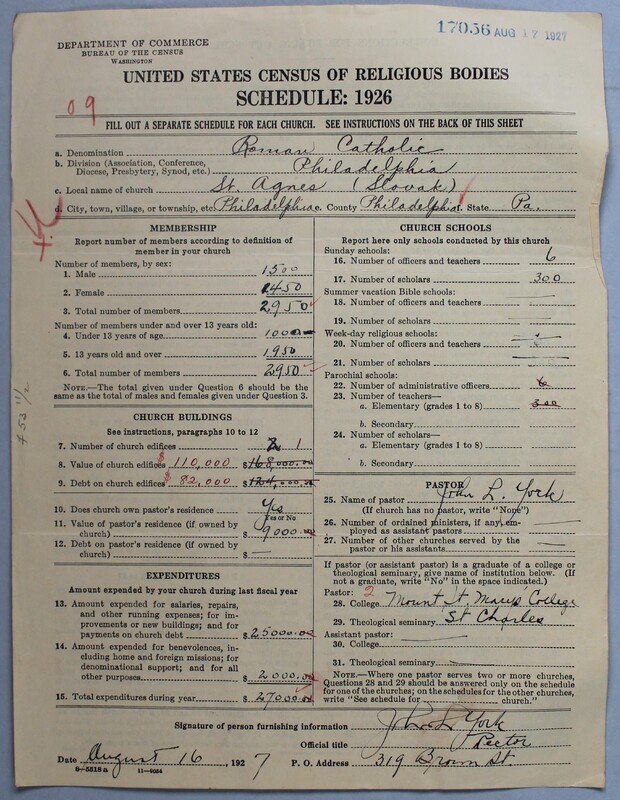 17056 AUG 17 1927
DEPARTMENT OF COMMERCE
BUREAU OF THE CENSUS
WASHINGTON
UNITED STATES CENSUS OF RELIGIOUS BODIES
SCHEDULE: 1926
09
FILL OUT A SEPARATE SCHEDULE FOR EACH CHURCH. SEE INSTRUCTIONS ON THE BACK OF THIS SHEET
a. Denomination Roman Catholic
b. Division (Association, Conference, Diocese, Presbytery, Synod, etc.) Philadelphia
c. Local name of church St. Agnes (Slovak)
d. City, town, village, or township, etc. Philadelphia e. County Philadelphia f. State Pa.
MEMBERSHIP
Report number of members according to definition of
member in your church
Number of members, by sex:
1. Male 1500
2. Female 1450
3. Total number of members 2950
Number of members under and over 13 years old:
4. Under 13 years of age 1000
5. 13 years old and over 1950
6. Total number of members 2950
NOTE.—The total given under Question 6 should be the
same as the total of males and females given under Question 3.
CHURCH BUILDINGS
See instructions, paragraphs 10 to 12
7. Number of church edifices 2 1
8. Value of church edifices $110,000 $168,000.00
9. Debt on church edifices $82,000 $124,000.00
10. Does church own pastor's residence? Yes
Yes or No
11. Value of pastor's residence (if owned by
church) $9000.00
12. Debt on pastor's residence (if owned by
church) $—
EXPENDITURES
Amount expended by your church during last fiscal year
13. Amount expended for salaries, repairs,
and other running expenses; for im-
provements or new buildings; and for
payments on church debt $25000.00
14. Amount expended for benevolences, in-
cluding home and foreign missions; for
denominational support; and for all
other purposes $2000.00
15. Total expenditures during year $27000.00
CHURCH SCHOOLS
Report here only schools conducted by this church
Sunday schools:
16. Number of officers and teachers 6
17. Number of scholars 300
Summer vacation Bible schools:
18. Number of officers and teachers —
19. Number of scholars —
Week-day religious schools:
20. Number of officers and teachers
21. Number of scholars
Parochial schools:
22. Number of administrative officers 6
23. Number of teachers—
a. Elementary (grades 1 to 8) 300
b. Secondary
24. Number of scholars—
a. Elementary (grades 1 to 8)
b. Secondary
PASTOR
25. Name of pastor John L. York
(If church has no pastor, write "None")
26. Number of ordained ministers, if any, em-
ployed as assistant pastors —
27. Number of other churches served by the
pastor or his assistants —
If pastor (or assistant pastor) is a graduate of a college or
theological seminary, give name of institution below. (If
not a graduate, write "No" in the space indicated.)
Pastor: 2
28. College Mount St. Mary's College
29. Theological seminary St Charles
Assistant pastor:
30. College —
31. Theological seminary —
NOTE.—Where one pastor serves two or more churches,
Questions 28 and 29 should be answered only on the schedule
for one of the churches; on the schedules for the other churches,
write "See schedule for church."
Signature of person furnishing information John L. York
Official title Rector
Date August 16, 1927 P. O. Address 319 Brown St.
8—5518 a 11—9054